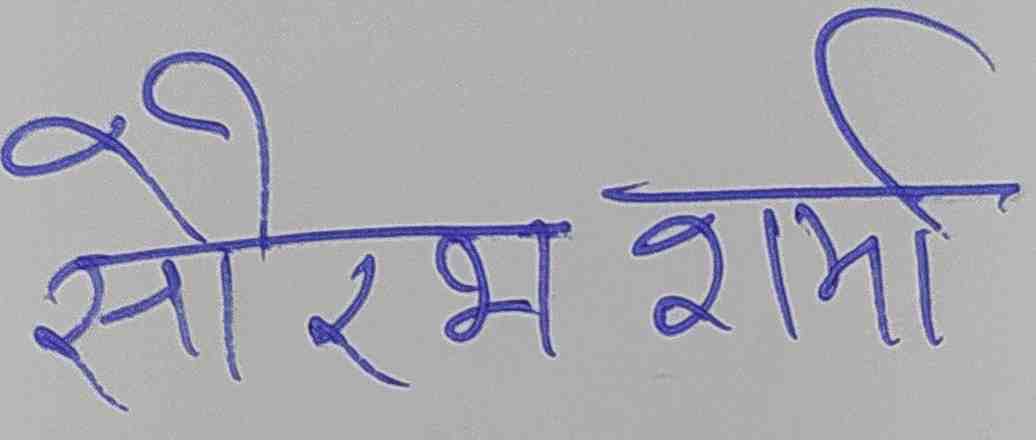 सौरभ शर्मा